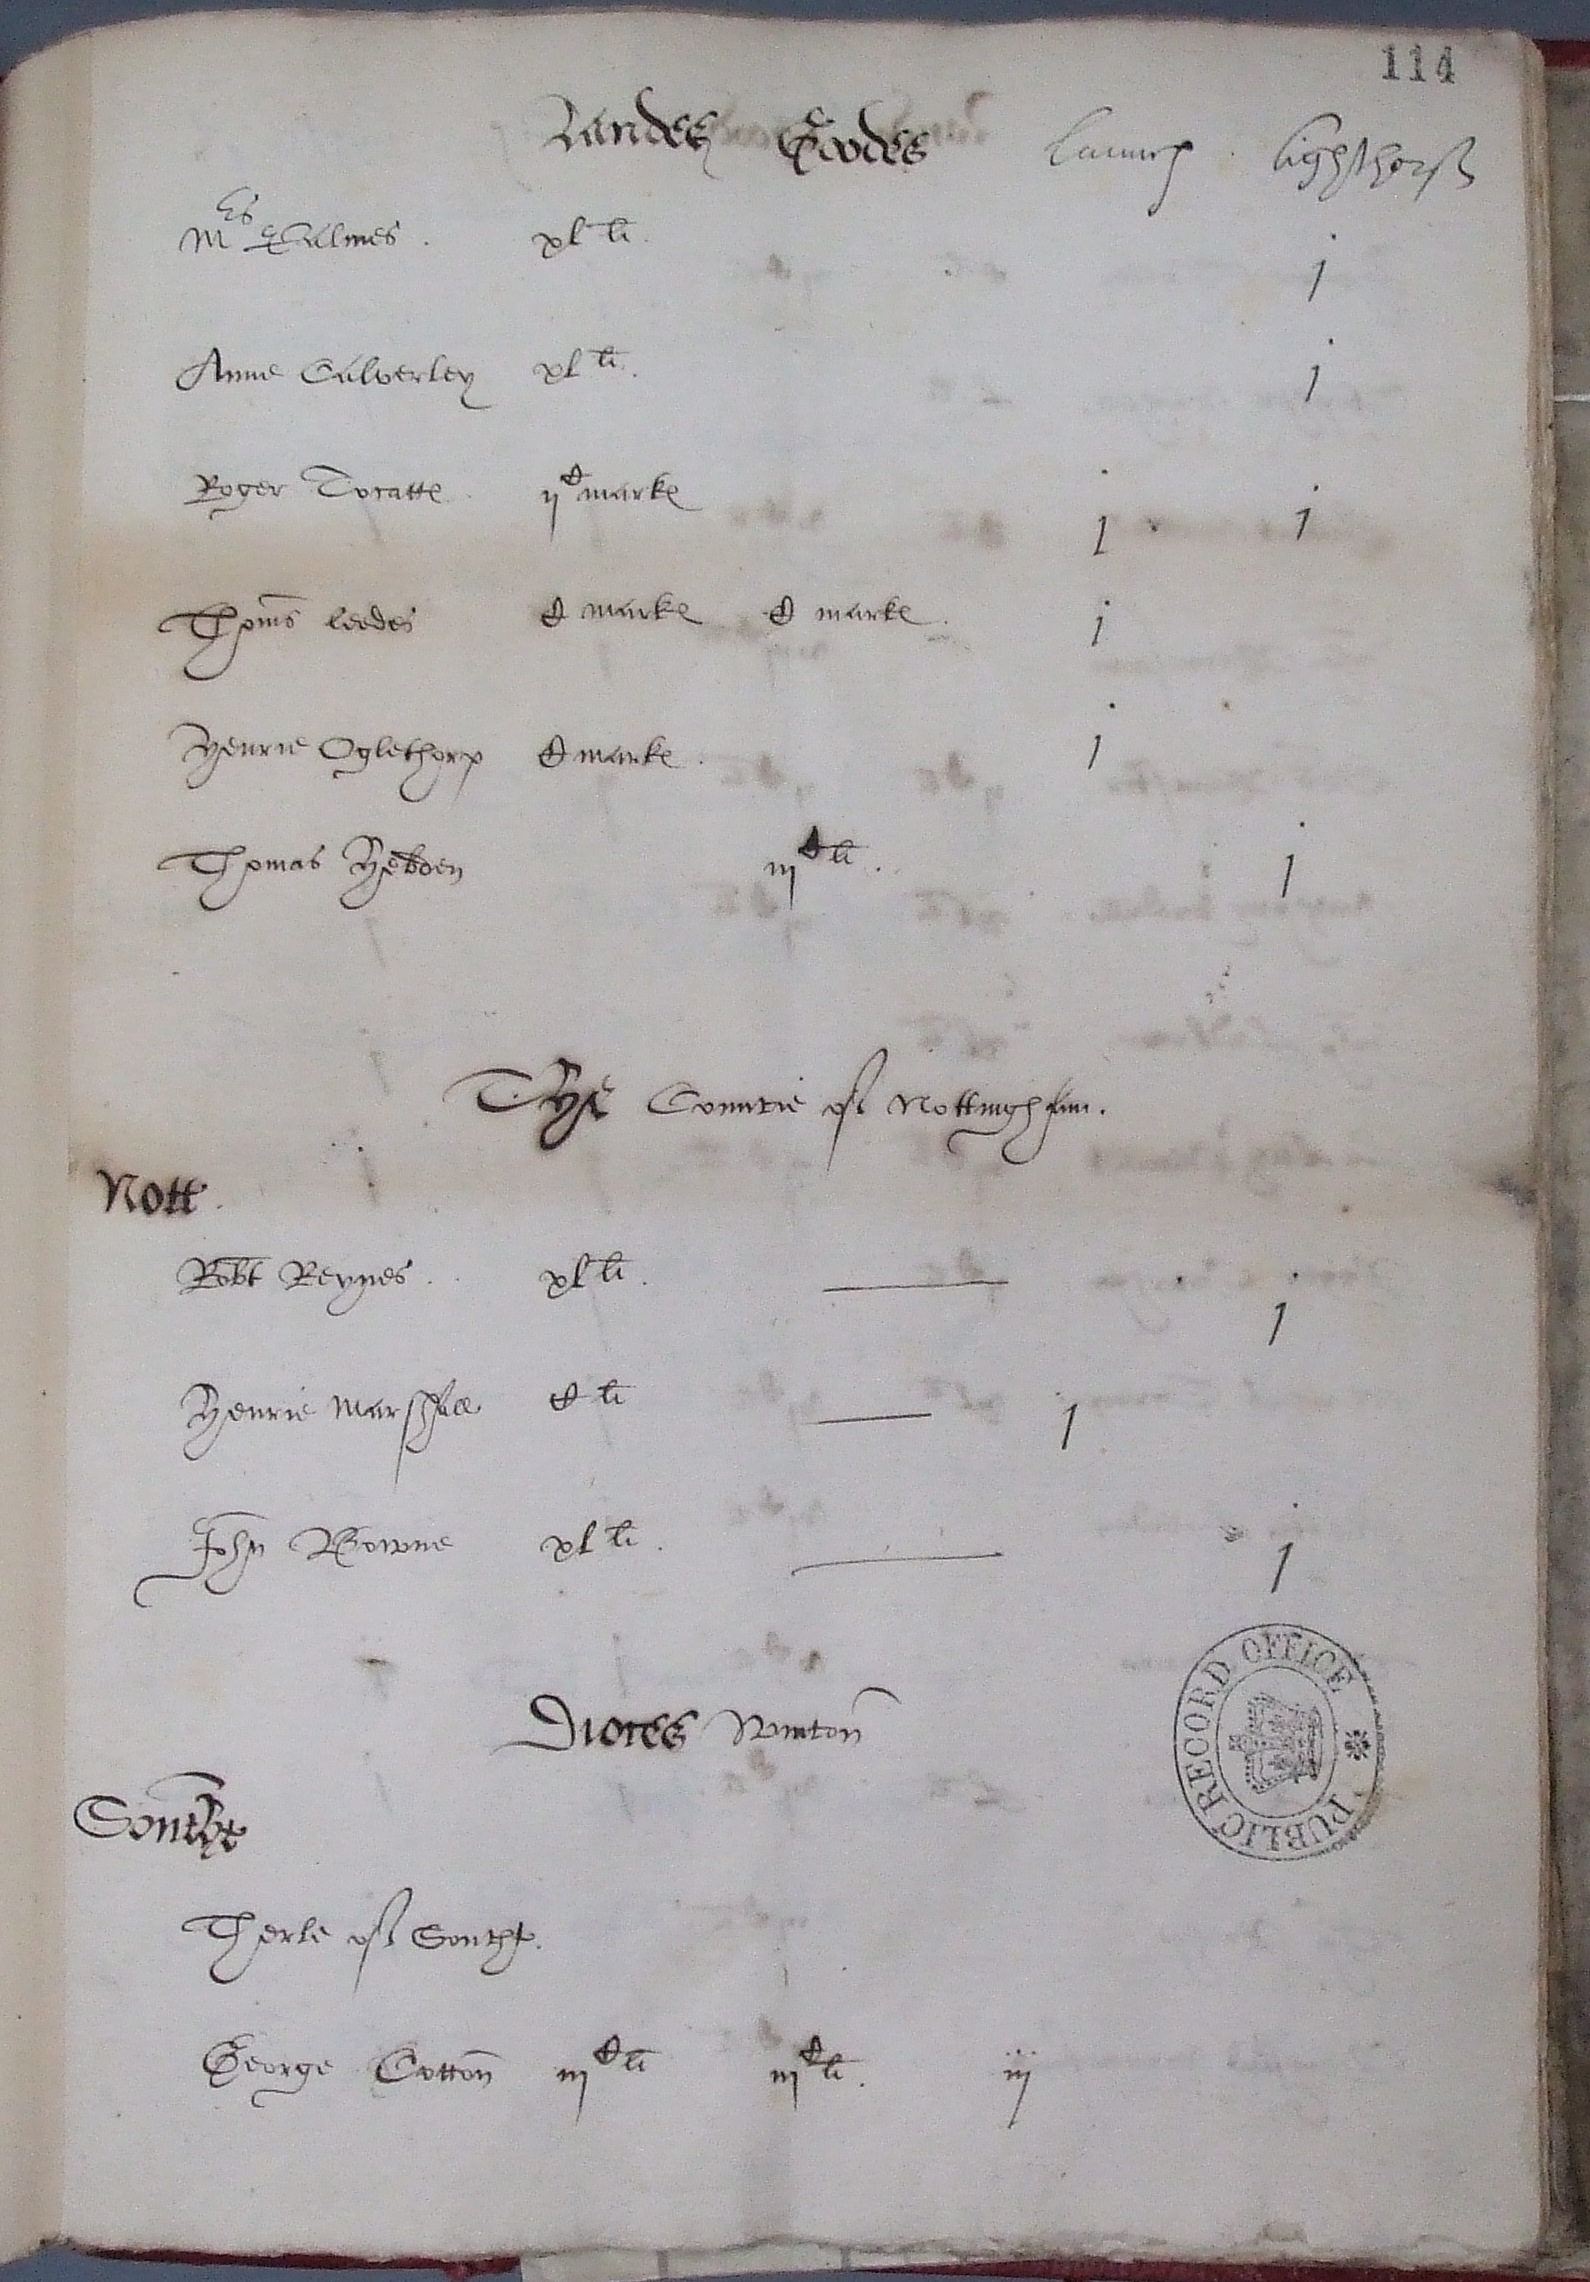 114
Landes Goodes Launces lighthorss
Mres Holmes . xl li .
j
Anne Calverley xl li . j
Roger Tocatte ijC marke j j
Thoms Leedes C marke C marke . j
Henrie Oglethorp C marke . j
Thomas Hebden iijC li . j
The Countie of Nottingham .
Nott .
Robt Reynes . xl li . j
Henrie Marshall C li j
John Bowne xl li . j
Dioces Winton
Southt
Therle of Southt .
George Cotton iijC li iijC li . iij
PUBLIC RECORD OFFICE